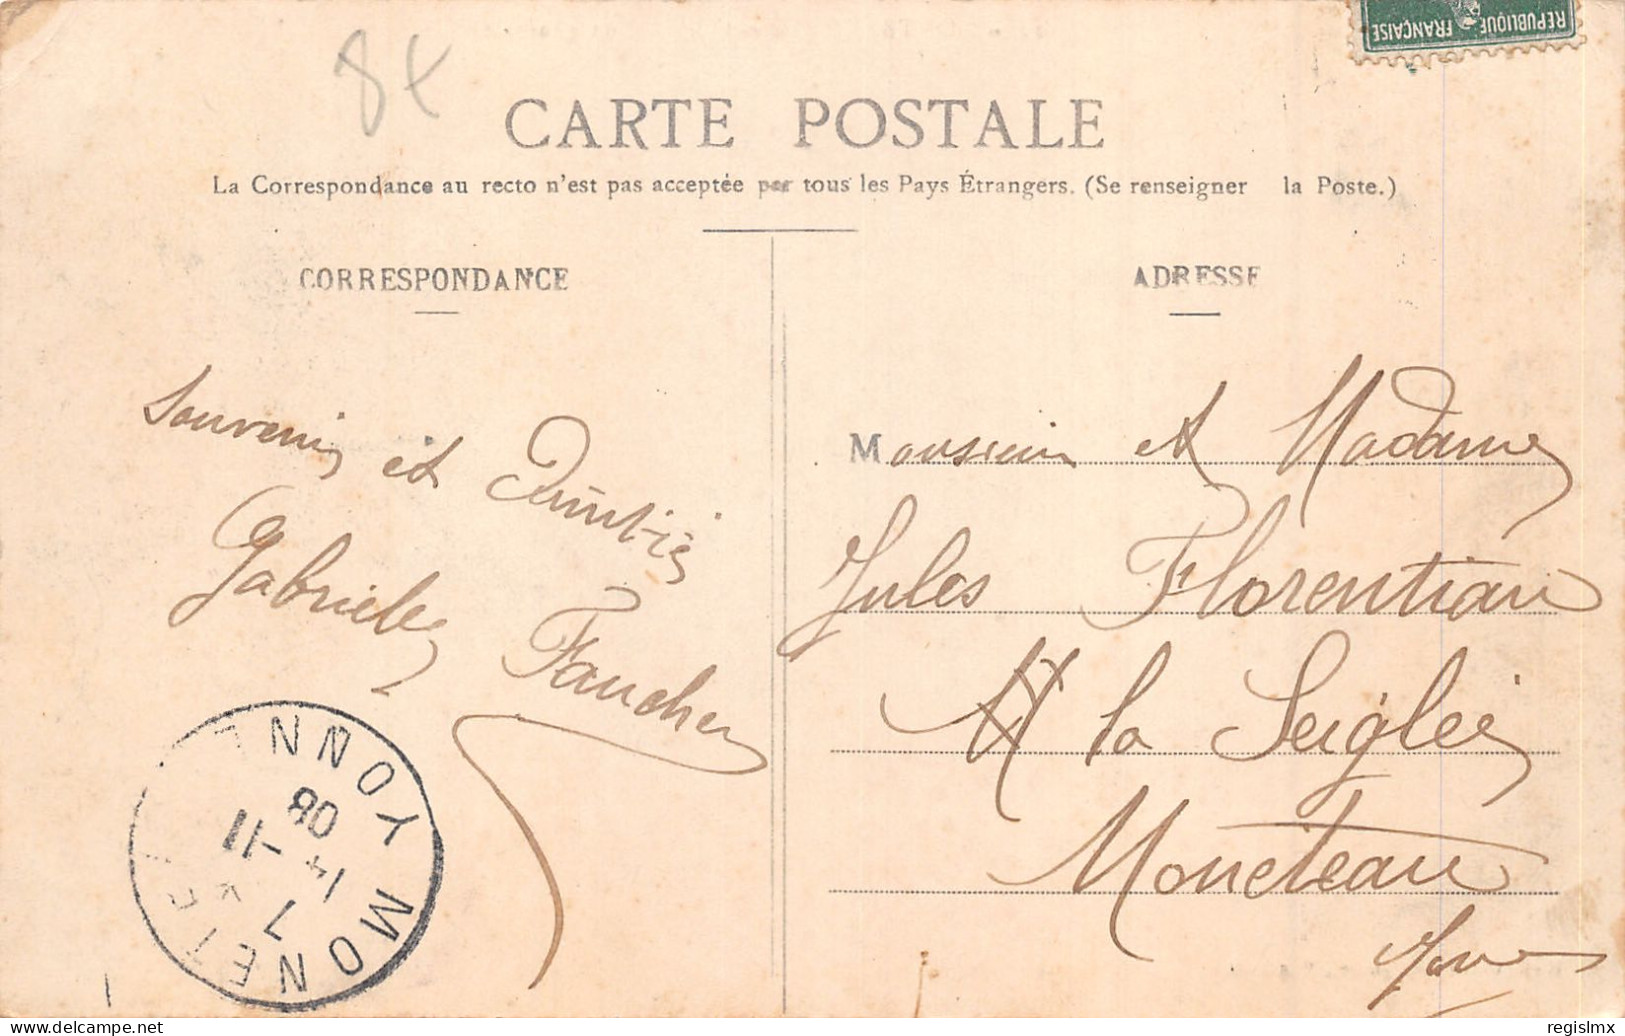 RÉPUBLIQUE FRANÇAISE
8t
CARTE POSTALE
La Correspondance au recto n'est pas acceptée par tous les Pays Étrangers. (Se renseigner la Poste.)
CORRESPONDANCE
Souvenir et Amitié
Gabrielle
Faucher
MONNOY MONET
14 11
7 08
ADRESSE
Monsieur et Madame
Jules Florentian
A la Seiglée
Moneteau
Yonne
regislmx